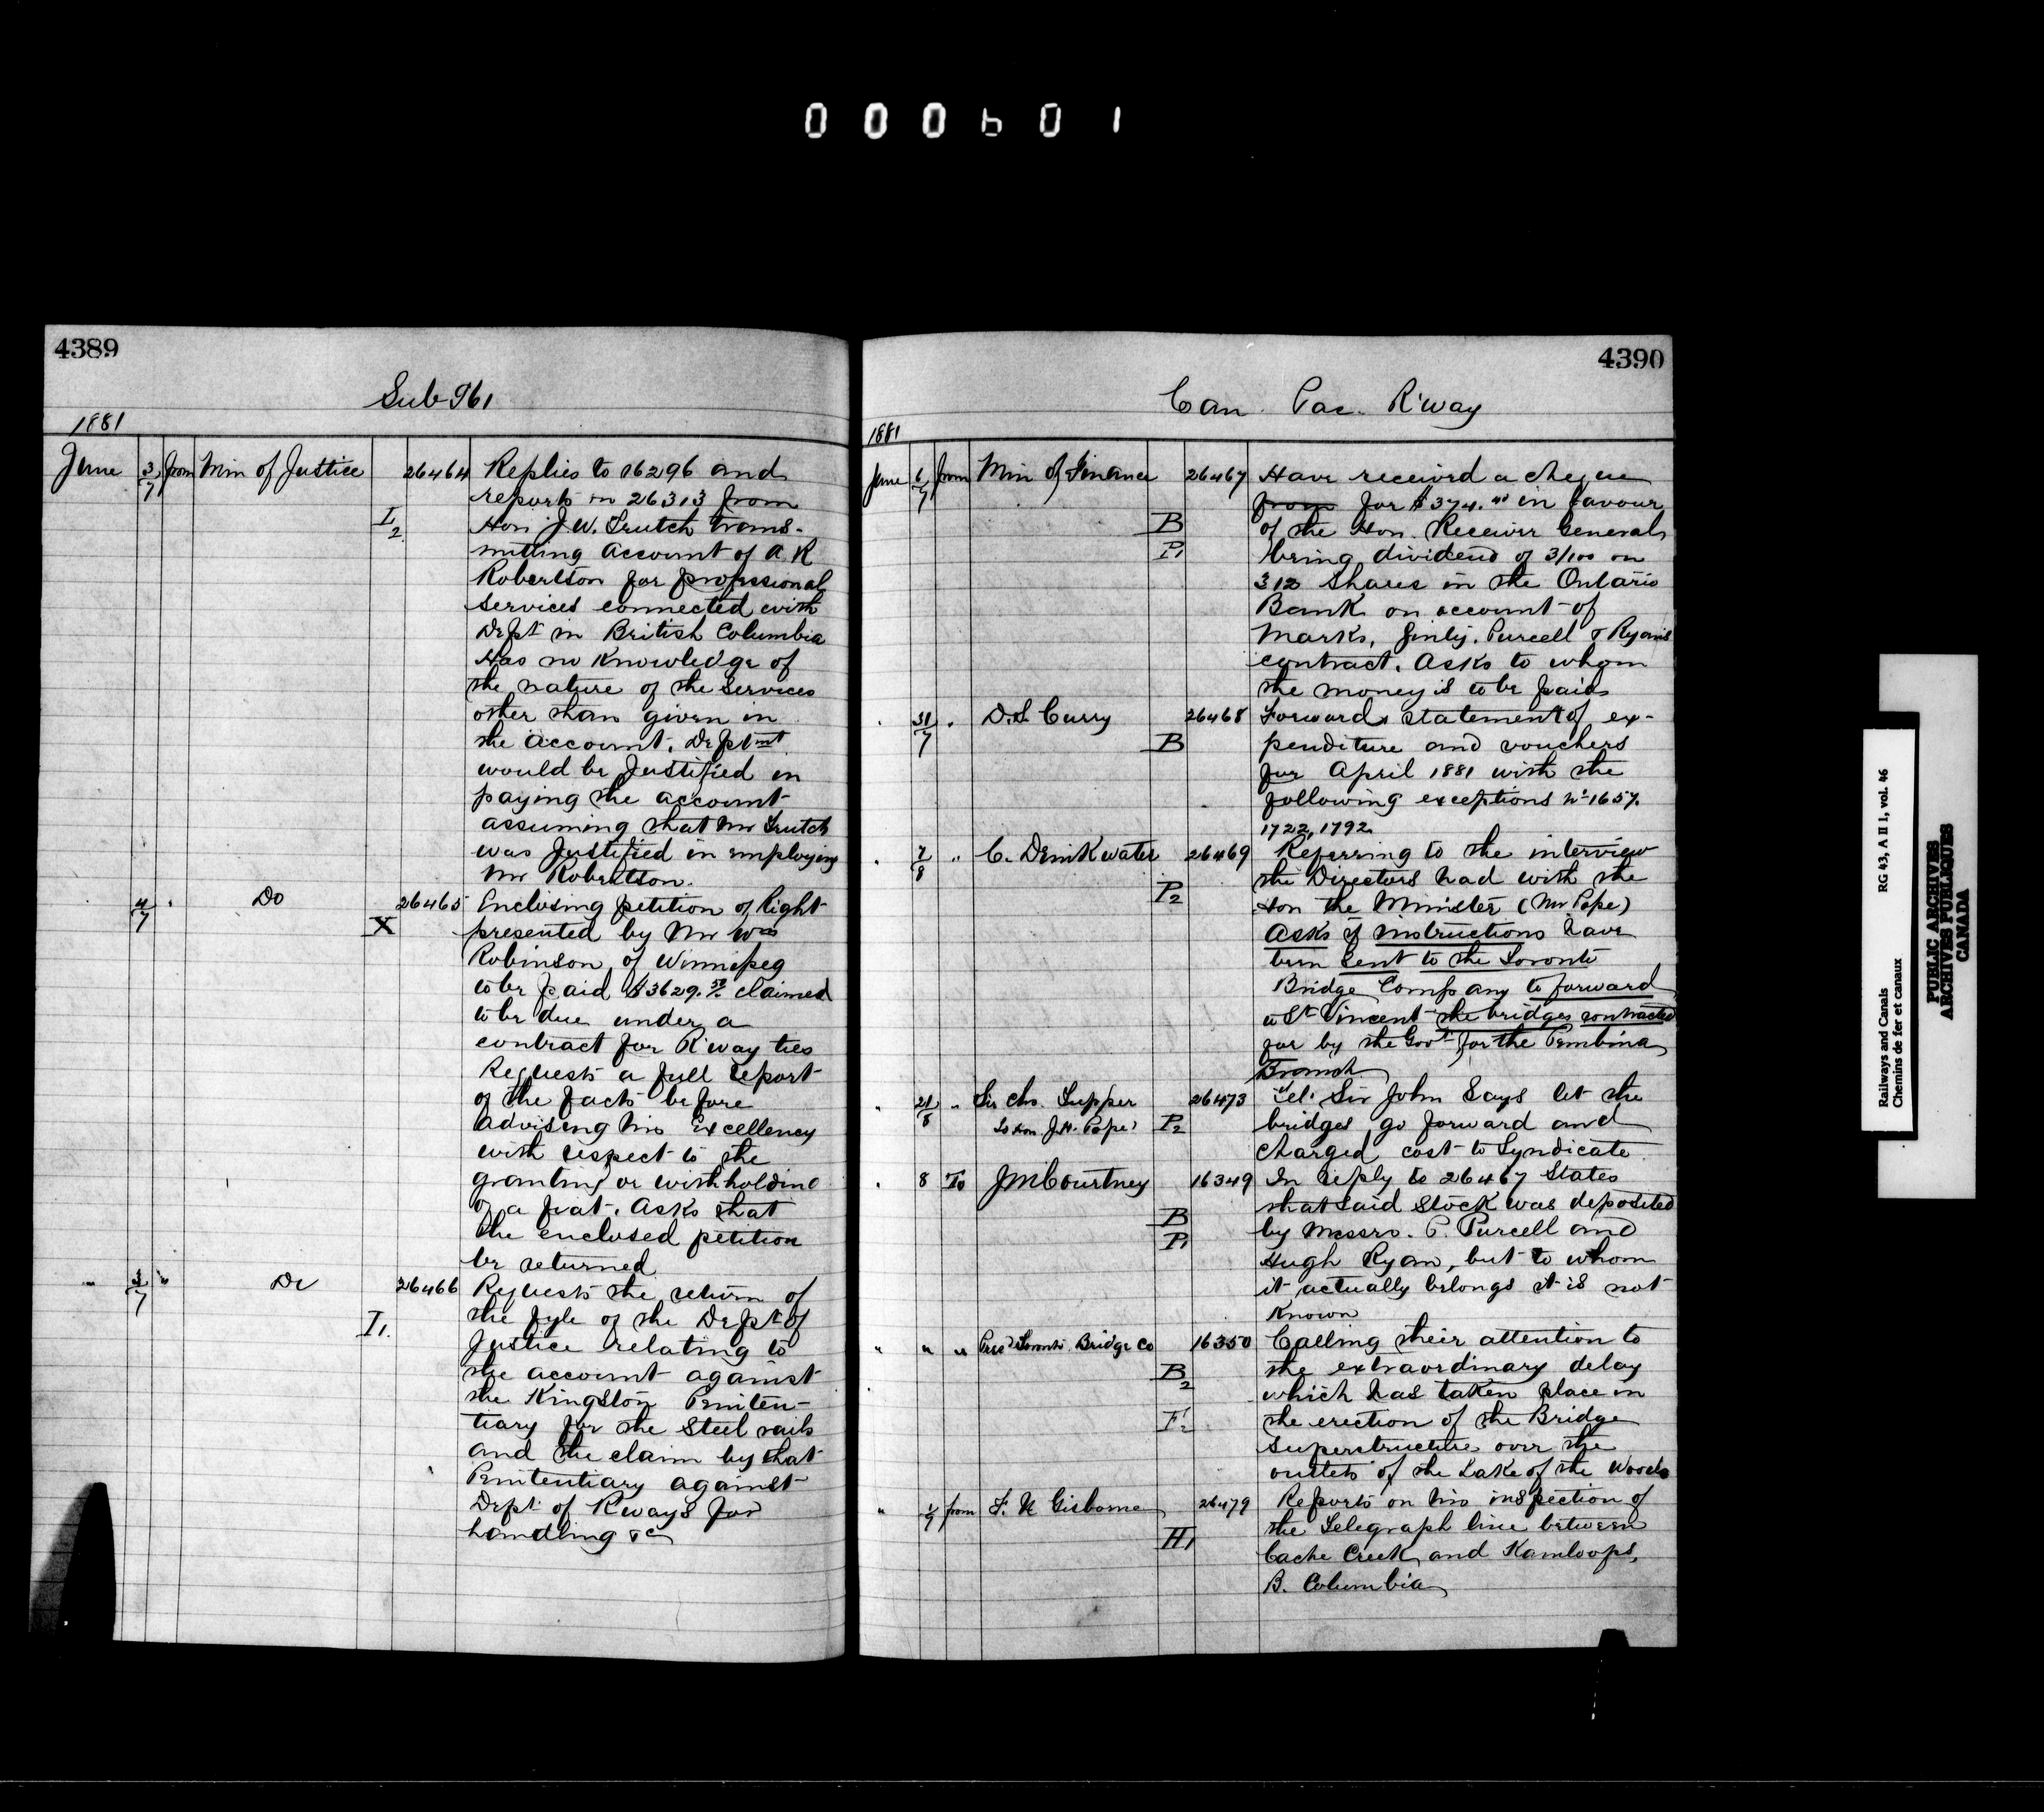 000601
4389
Sub 961
1881
June 3/7 from Min of Justice 26464 Replies to 16296 and
reports on 26313 from
I2 Hon J. W. Trutch trans-
mitting account of A R
Robertson for professional
services connected with
Dept in British Columbia
Has no knowledge of
the nature of the services
other than given in
the account. Deptmt
would be justified in
paying the account
assuming that Mr Trutch
was justified in employing
Mr Robertson.
4/7 " Do 26465 Enclosing petition of Right
X presented by Mr Wm
Robinson of Winnipeg
to be paid $3629.50 claimed
to be due under a
contract for R'way ties
Requests a full report
of the facts before
advising his Excellency
with respect to the
granting or withholding
of a fiat. Asks that
the enclosed petition
be returned
" 3/7 " Do 26466 Requests the return of
the fyle of the Dept of
I1. Justice relating to
the account against
the Kingston Peniten-
tiary for the Steel rails
and the claim by that
Penitentiary against
Dept of Rways for
handling &c
4390
Can. Pac. R'way
1881
June 6/7 from Min of Finance 26467 Have received a cheque
from for $374.40 in favour
B of the Hon. Receiver General
P1 being dividend of 3/100 on
312 shares in the Ontario
Bank on account of
Marks, Ginty, Purcell & Ryan's
contract. Asks to whom
the money is to be paid
" 31/7 " D. S. Curry 26468 Forwards statement of ex-
B penditure and vouchers
for April 1881 with the
following exceptions No 1657.
1722, 1792.
" 7/8 " C. Drinkwater 26469 Referring to the interview
the Directors had with the
P2 Hon the Minister (Mr Pope)
Asks if instructions have
been sent to the Toronto
Bridge Company to forward
to St Vincent the bridges contracted
for by the Govt for the Pembina
Branch
" 21/8 " Sir Chs. Tupper 26473 Tel. Sir John Says let the
To Hon J. H. Pope P2 bridges go forward and
charged cost to Syndicate
" 8 To J M Courtney 16349 In reply to 26467 States
that said Stock was deposited
B by Messrs. P. Purcell and
P1 Hugh Ryan, but to whom
it actually belongs it is not
known
" " " Pres Toronto Bridge Co 16350 Calling their attention to
B2 the extraordinary delay
which has taken place in
F2 the erection of the Bridge
Superstructure over the
outlets of the Lake of the Woods
" 4/7 from F. N Gisborne 26479 Reports on his inspection of
the Telegraph line between
H1 Cache Creek and Kamloops,
B. Columbia
Railways and Canals RG 43, A II 1, vol. 46
Chemins de fer et canaux
PUBLIC ARCHIVES
ARCHIVES PUBLIQUES
CANADA